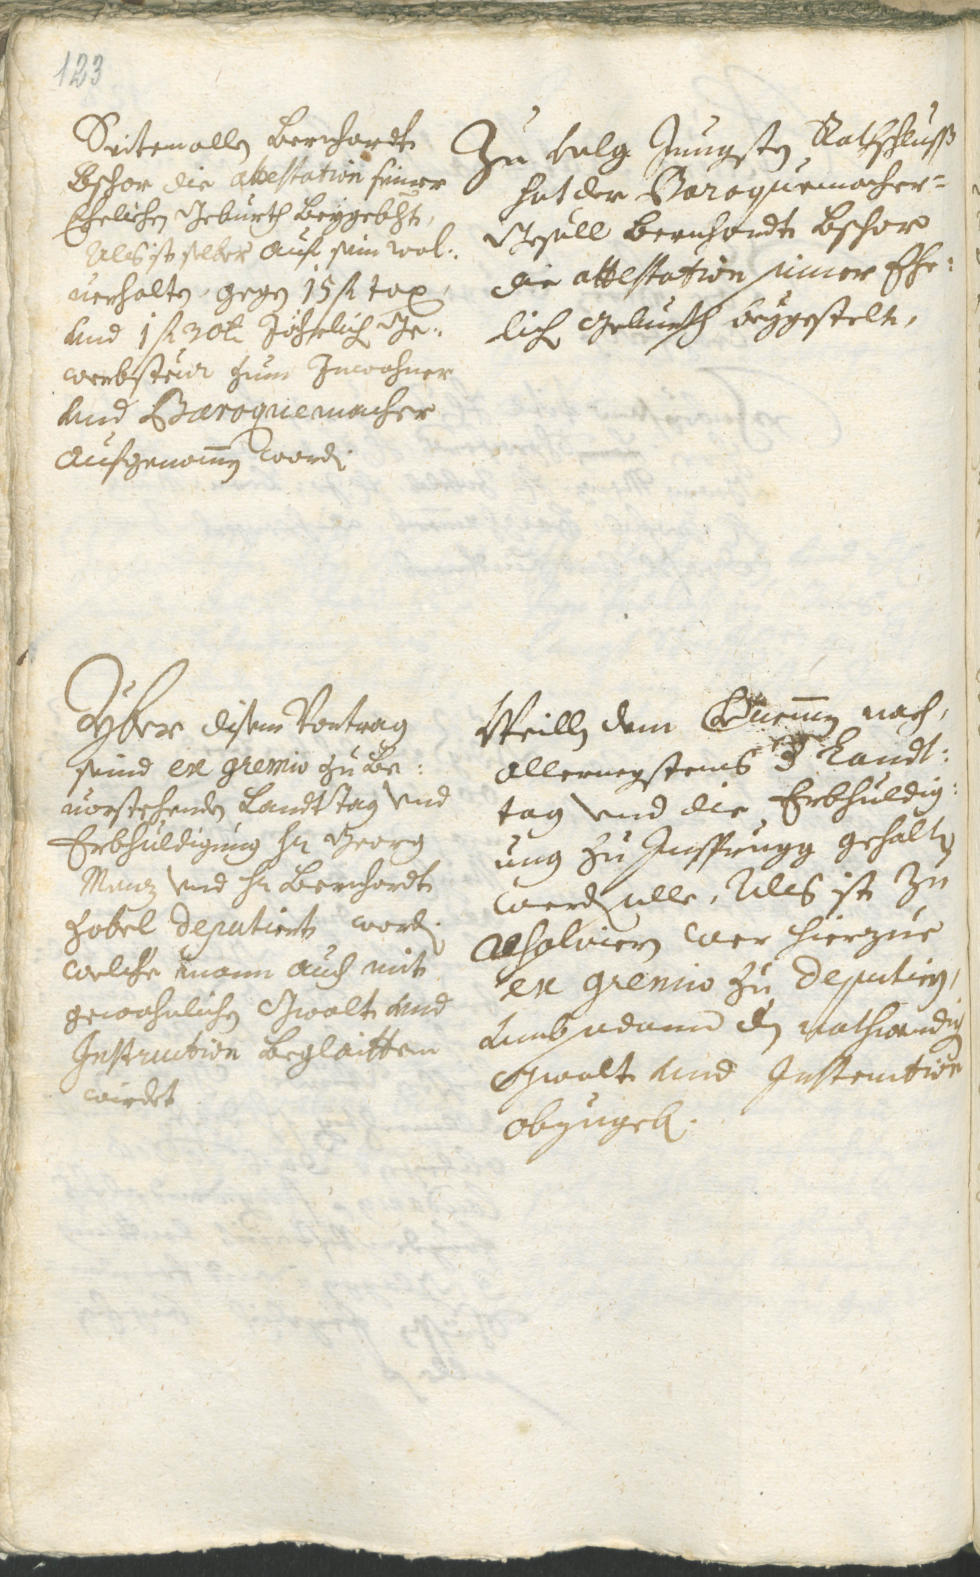 123
Seitemallen Bernhardt
Bschor die attestation seiner
Ehelichen Geburth beygebcht,
Als ist selber auf sein wol:
verhalten, gegen 15 fl tax,
und 1 fl 30 k Jährlich Ge:
werbsteur zum Inwohner
und Baroquemacher
aufgenommen word.
Zu folg Jungsten Rathschluss
hat der Baroquemacher=
Gesell Bernhardt Bschor
die attestation seiner Ehe:
lich Geburth beygestelt,
Yber disem Vortrag
seind ex gremio zu be:
vorstehenden Landtag und
Erbhuldigung Hr Georg
Menz und Hr Bernhardt
Zobel deputiert word.
welche dann auch mit
gewohnlichen Gwalt und
Instruction beglaittem
wirdet
Weillen dem nach,
allernegstens Landt:
tag und die Erbhuldig:
ung zu Insprugg gehalten
werd solle, Als ist zu
resolviern wer hierzue
ex gremio zu deputiern,
umb adann den nothwendig
Gwalt und Instruction
abzugeb.